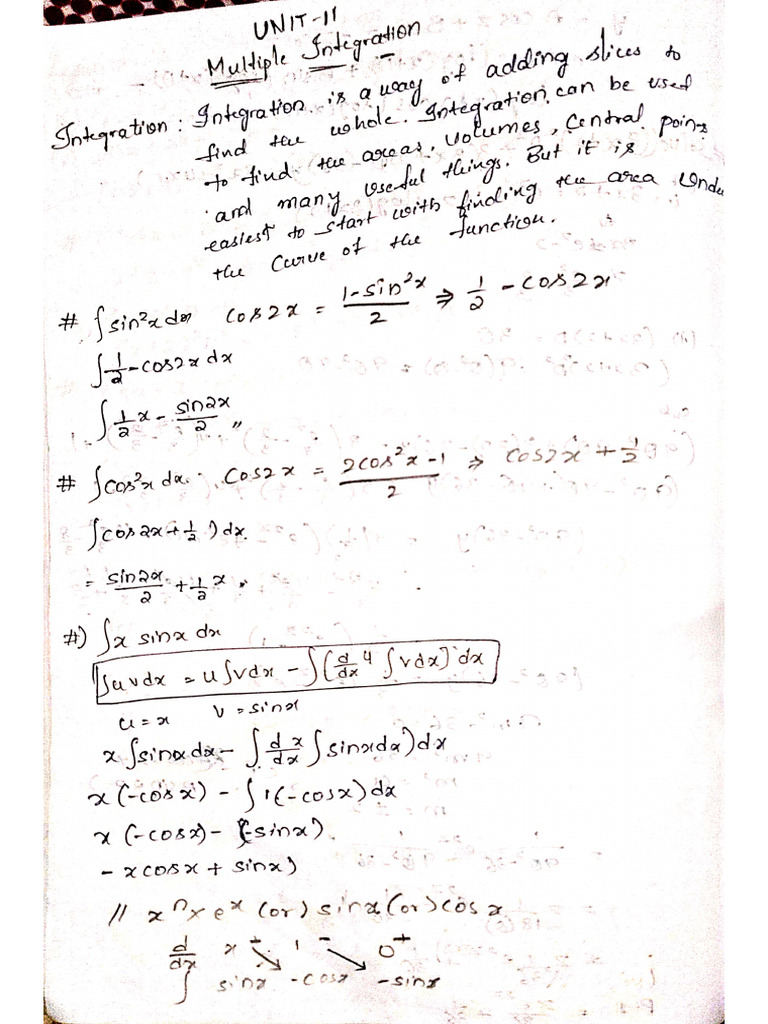 UNIT-11
Multiple Integration
Integration : Integration is a way of adding slices to
find the whole. Integration can be used
to find the areas, volumes, central poins
and many useful things. But it is
easiest to start with finding the area Unde
the curve of the function.
# ∫sin²x dx cos2x = (1-sin²x)/2 ⇒ 1/2 - cos2x
∫1/2 - cos2x dx
∫1/2 x - sin2x/2 ,,
# ∫cos²x dx. cos2x = (2cos²x-1)/2 ⇒ cos2x + 1/2
∫cos2x + 1/2) dx.
= sin2x/2 + 1/2 x .
#) ∫x sinx dx
∫uvdx = u∫vdx - ∫(d/dx u ∫vdx) dx
u = x v = sinx
x∫sinxdx - ∫ dx/dx ∫sinxdx) dx
x(-cosx) - ∫1(-cosx)dx
x(-cosx) - (-sinx)
-xcosx + sinx)
// xⁿ x eˣ (or) sinx (or) cosx
d/dx x + 1 - 0 +
∫ sinx -cosx -sinx